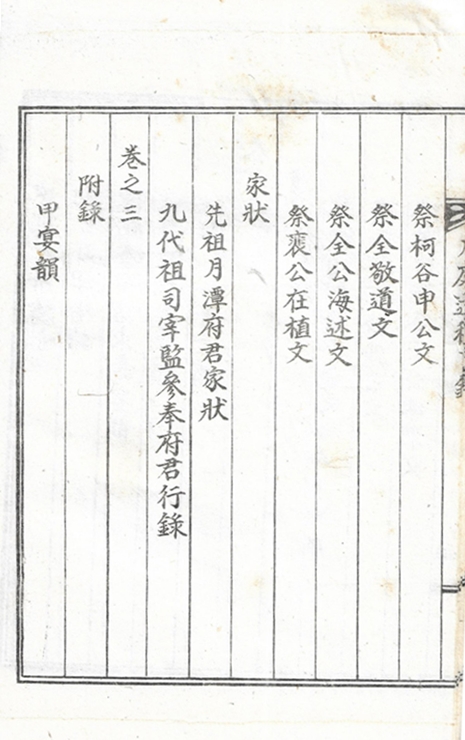 祭柯谷申公文
祭全敬道文
祭全公海述文
祭裵公在植文
家狀
先祖月潭府君家狀
九代祖司宰監參奉府君行錄
卷之三
附錄
甲宴韻